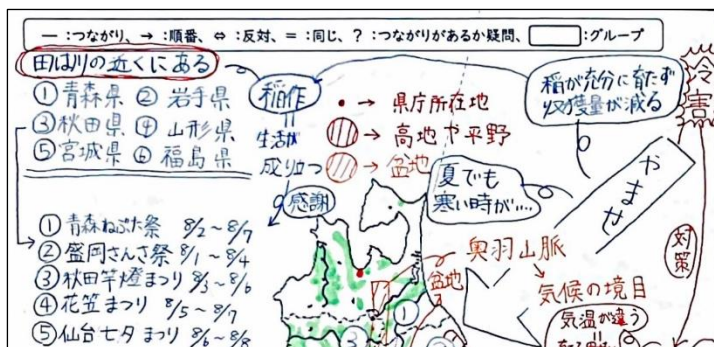 ― :つながり、→ :順番、⇔ :反対、= :同じ、? :つながりがあるか疑問、 :グループ
田はりの近くにある
① 青森県 ② 岩手県
③ 秋田県 ④ 山形県
⑤ 宮城県 ⑥ 福島県
① 青森ねぶた祭 8/2~8/7
② 盛岡さんさ祭 8/1~8/4
③ 秋田竿燈まつり 8/3~8/6
④ 花笠まつり 8/5~8/7
⑤ 仙台七夕まつり 8/6~8/8
稲作
生活が
成り立つ
感謝
→ 県庁所在地
→ 高地や平野
→ 盆地
夏でも
寒い時が‥‥
稲が充分に育たず
収獲量が減る
冷害
やませ
対策
奥羽山脈
盆地
気候の境目
気温が違う
①
③